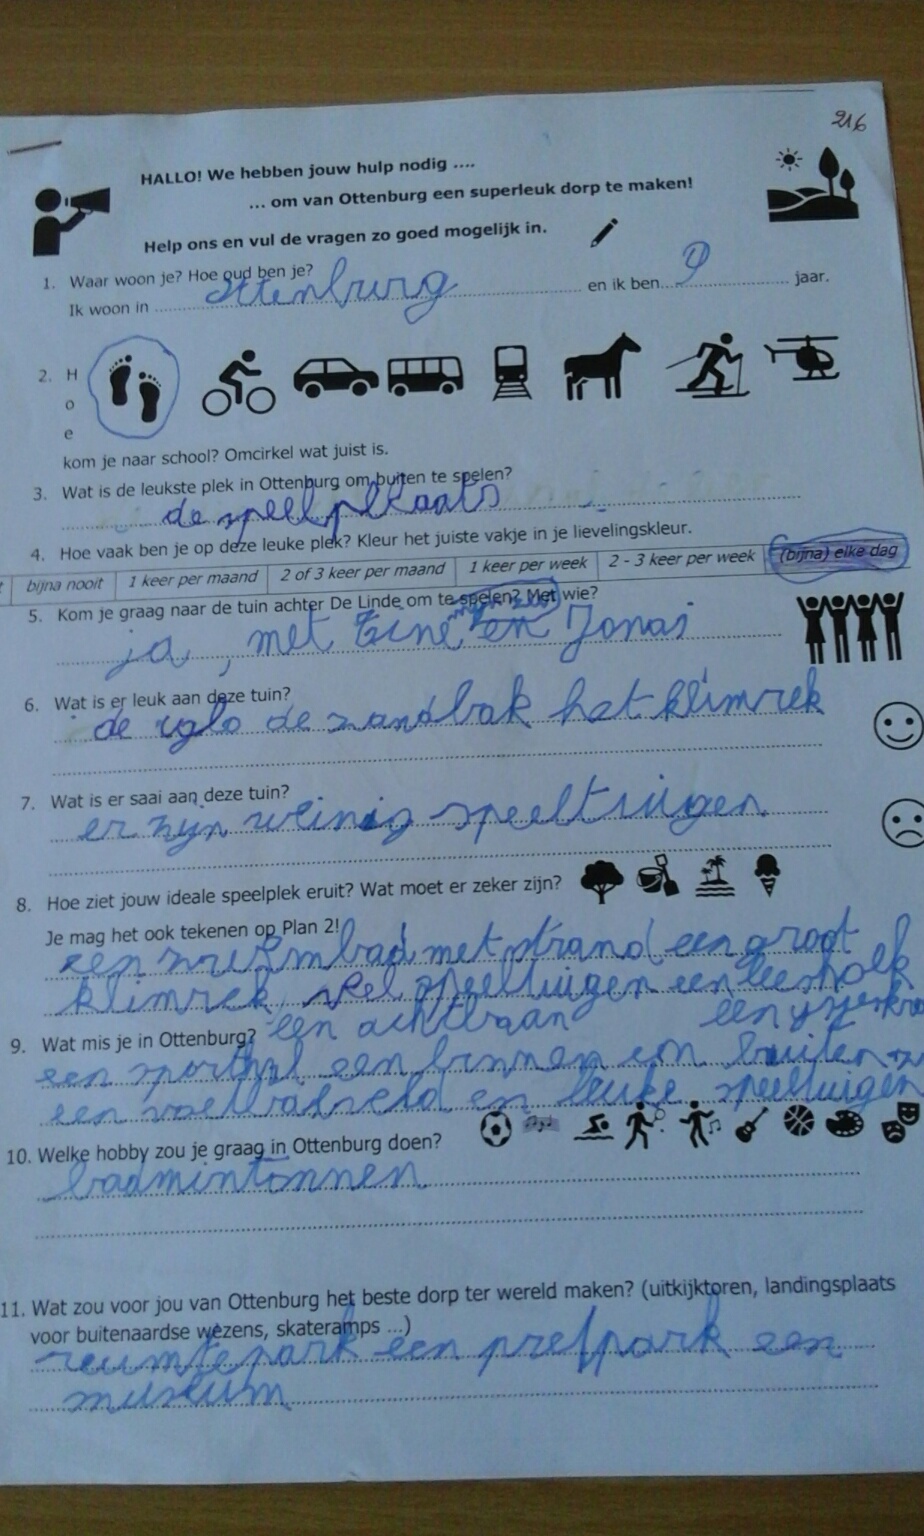 216
HALLO! We hebben jouw hulp nodig ....
... om van Ottenburg een superleuk dorp te maken!
Help ons en vul de vragen zo goed mogelijk in.
1. Waar woon je? Hoe oud ben je?
Ik woon in ottenburg en ik ben 9 jaar.
2. Hoe
kom je naar school? Omcirkel wat juist is.
3. Wat is de leukste plek in Ottenburg om buiten te spelen?
de speelplaats
4. Hoe vaak ben je op deze leuke plek? Kleur het juiste vakje in je lievelingskleur.
t bijna nooit 1 keer per maand 2 of 3 keer per maand 1 keer per week 2 - 3 keer per week (bijna) elke dag
5. Kom je graag naar de tuin achter De Linde om te spelen? Met wie?
ja, met en Jonas
6. Wat is er leuk aan deze tuin?
de iglo de zandbak het klimrek
7. Wat is er saai aan deze tuin?
er zijn weinig speeltuigen
8. Hoe ziet jouw ideale speelplek eruit? Wat moet er zeker zijn?
Je mag het ook tekenen op Plan 2!
een zwembad met strand een groot
klimrek veel speeltuigen een leeshoek
een achtbaan een
9. Wat mis je in Ottenburg?
een sporthal een binnen en buiten
een voetbalveld en leuke speeltuigen
10. Welke hobby zou je graag in Ottenburg doen?
badmintonnen
11. Wat zou voor jou van Ottenburg het beste dorp ter wereld maken? (uitkijktoren, landingsplaats
voor buitenaardse wezens, skateramps ...)
ruimtepark een pretpark een
museum